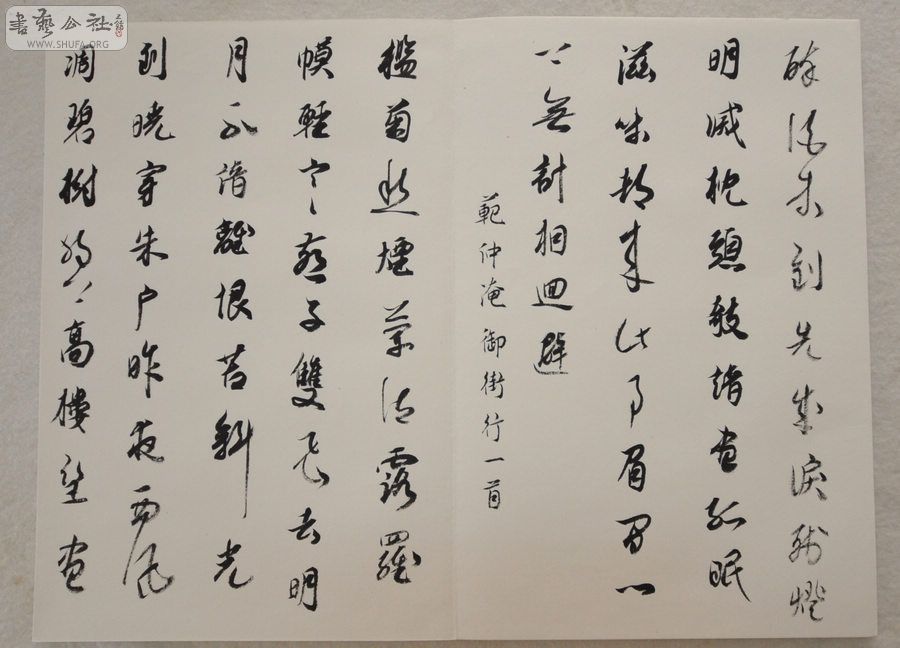 書藝公社
WWW.SHUFA.ORG
醉酒未到先成淚殘燈
明滅枕頭敧諳盡孤眠
滋味都來此事眉間心
上無計相迴避
範仲淹御街行一首
檻菊愁煙蘭泣露羅
幙輕寒燕子雙飛去明
月不諳離恨苦斜光
到曉穿朱戶昨夜西風
凋碧樹獨上高樓望盡